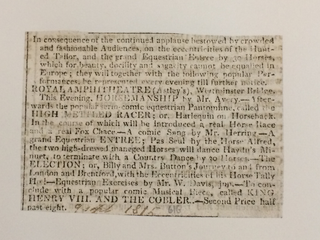 In consequence of the continued applause bestowed by crowded
and fashionable Audiences, on the eccentricities of the Hunt-
ed Tailor, and the grand Equestrian Entree by 30 Horses,
which for beauty, docility and sagacity cannot be equalled in
Europe; they will together with the following popular Per-
formances, be represented every evening till further notice.
ROYAL AMPHITHEATRE (Astley's), Westminster Bridge.
This Evening, HORSEMANSHIP by Mr. Avery.—After-
wards the popular comic equestrian Pantomime, called the
HIGH METTLED RACER; or, Harlequin on Horseback.
In the course of which will be introduced a real Horse Race
and a real Fox Chace—A comic Song by Mr. Herring—A
grand Equestrian ENTREE; Pas Seul by the Horse Alfred,
the two high-dressed managed Horses will dance Haydn's Mi-
nuet, to terminate with a Country Dance by 10 Horses—The
ELECTION; or, Billy and Mrs. Button's Journey to and from
London and Brentford, with the Eccentricities of his Horse Tally
Ho!—Equestrian Exercises by Mr. W. Davis, jun.—To con-
clude with a popular comic Musical Piece, called KING
HENRY VIII. AND THE COBLER.—Second Price half
past eight.